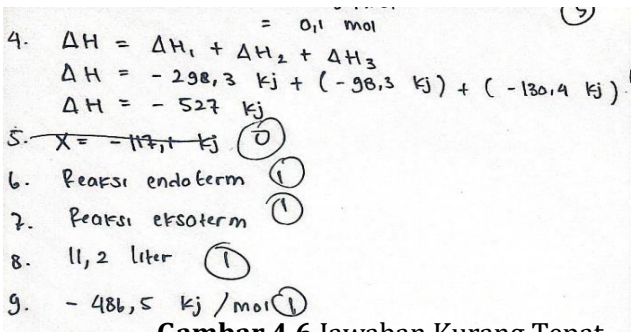 = 0,1 mol
4. ΔH = ΔH₁ + ΔH₂ + ΔH₃
ΔH = - 298,3 kj + (- 98,3 kj) + (- 130,4 kj)
ΔH = - 527 kj
5. X = - 117,1 kj 0
6. Reaksi endoterm 1
7. Reaksi eksoterm 1
8. 11,2 liter 1
9. - 486,5 kj / mol 1
Gambar 4.6 Jawaban Kurang Tepat